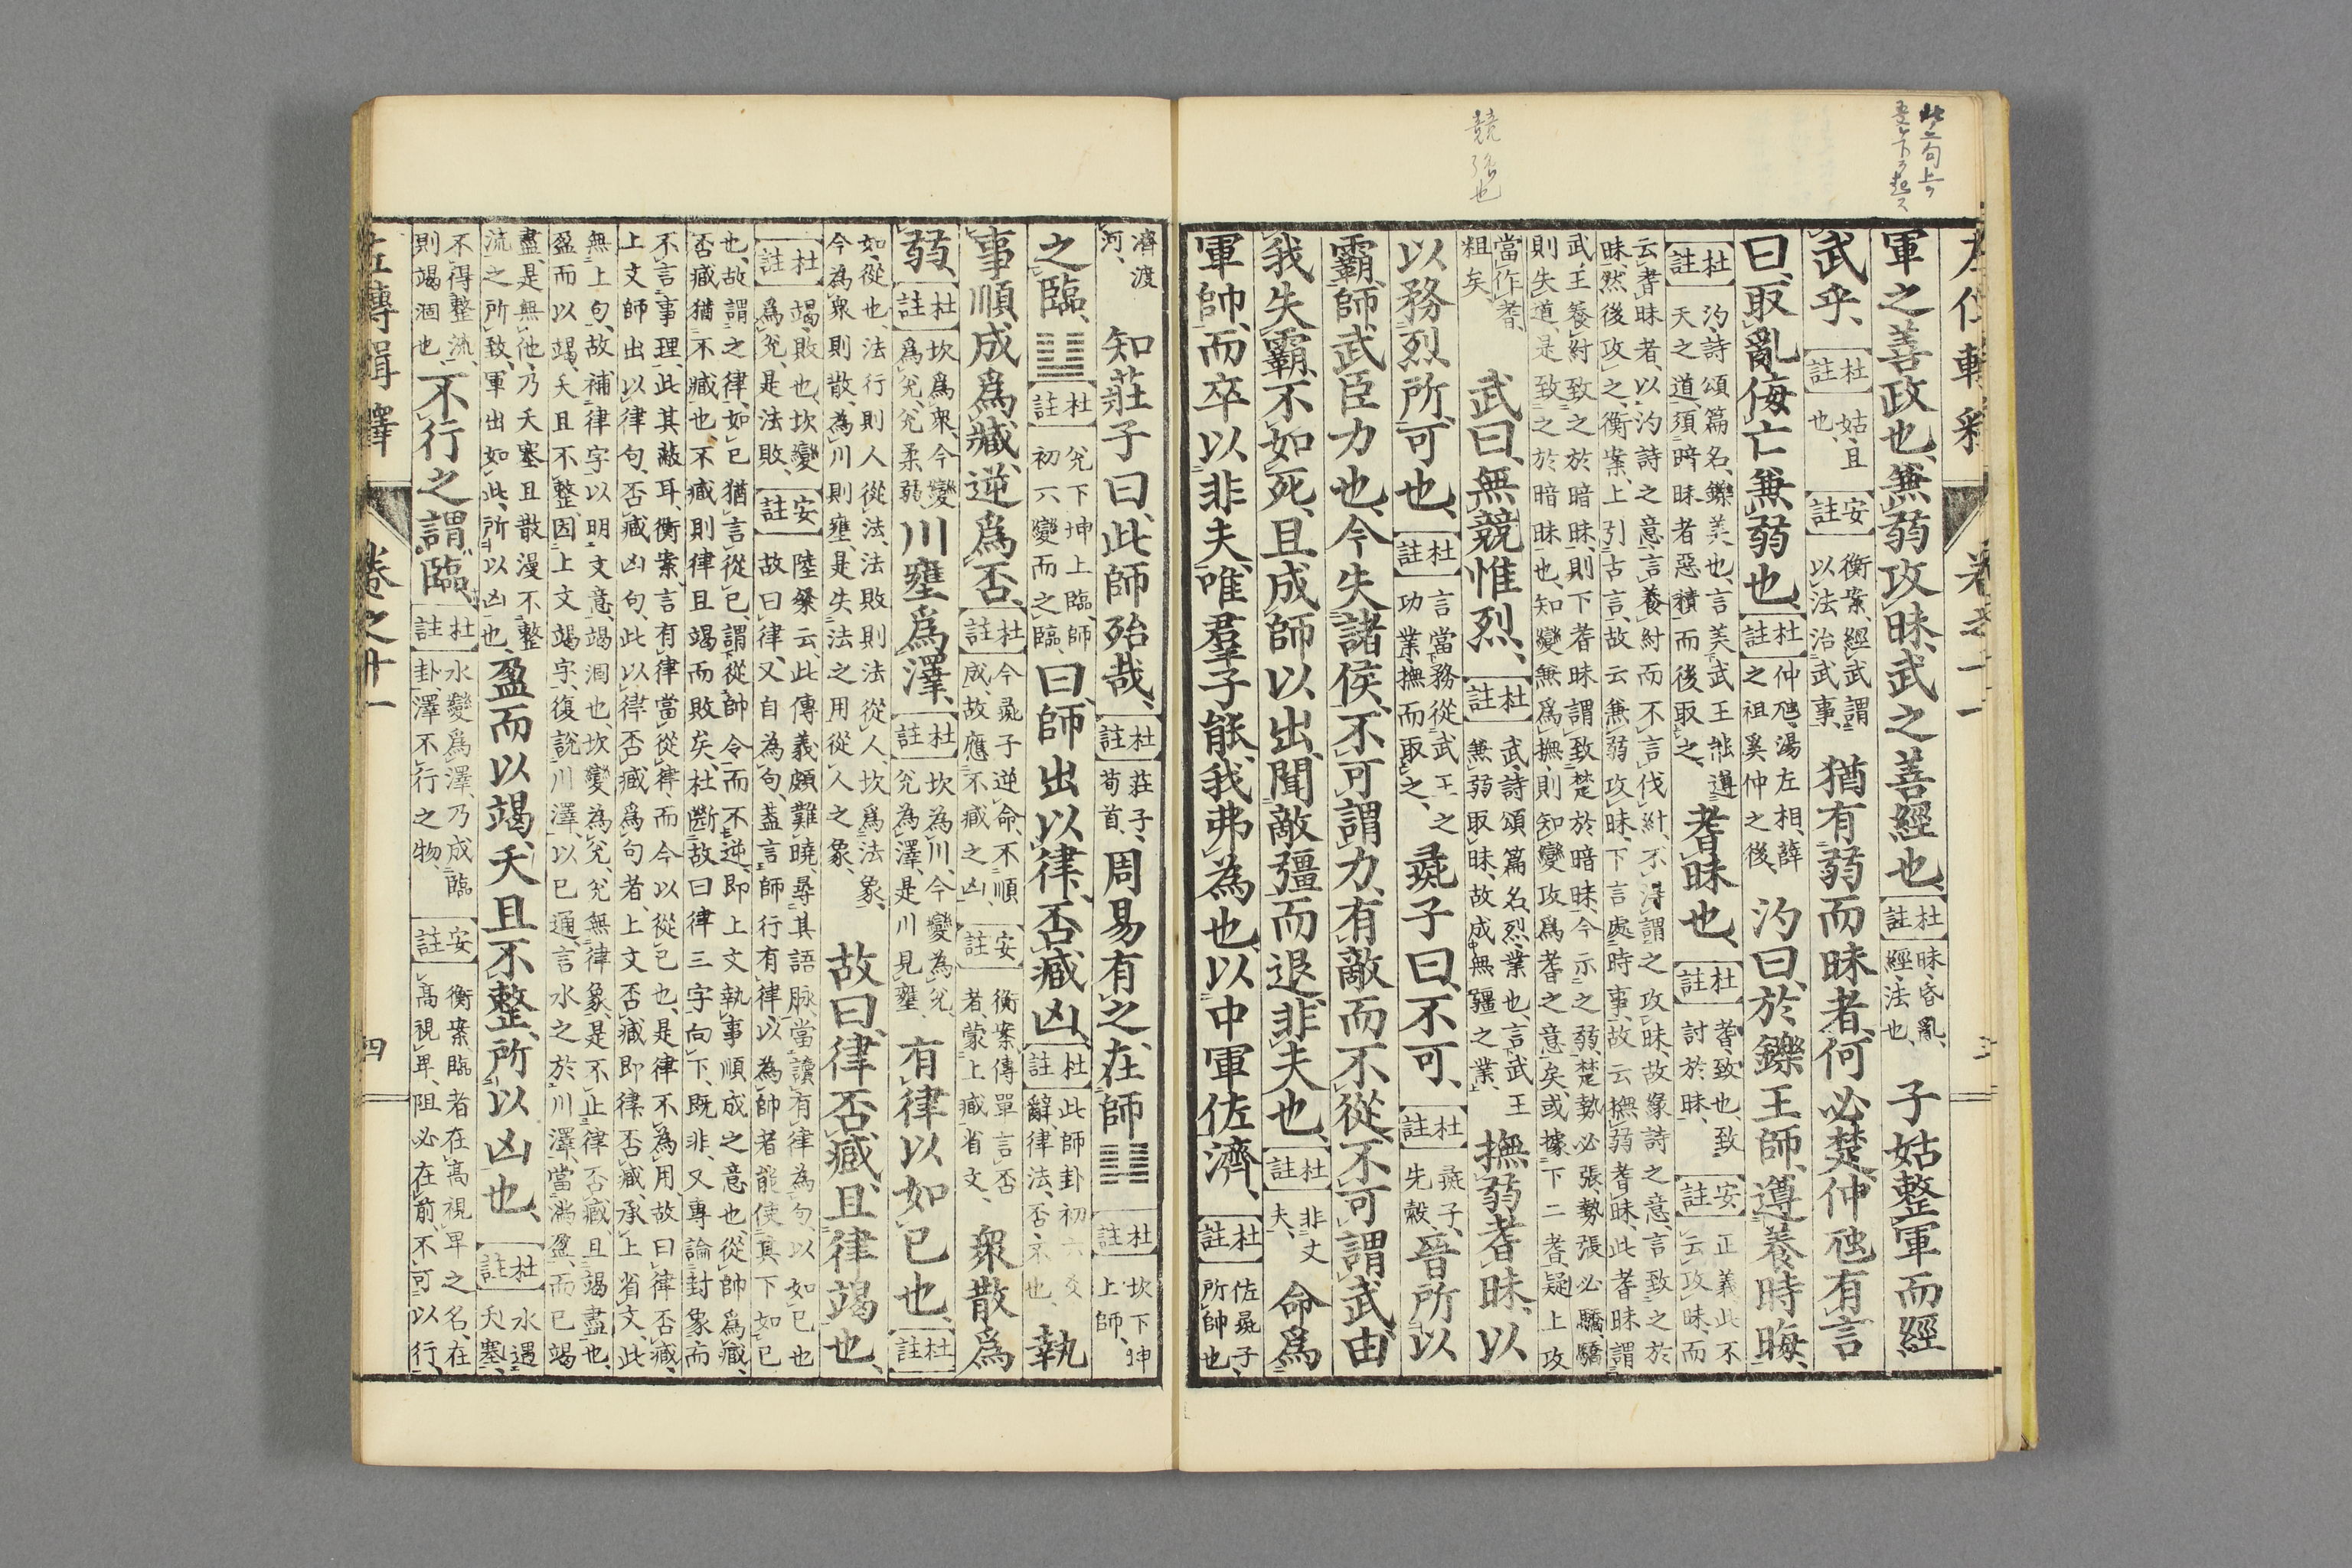 左傳輯釋 卷之十一 三
軍之善政也、兼弱攻昧、武之善經也、杜註 昧、昏亂、經、法也、子姑整軍而經
武乎、杜註 姑、且也、安註 衡案、經武謂以法治武事、猶有弱而昧者、何必楚、仲虺有言
曰、取亂侮亡、兼弱也、杜註 仲虺、湯左相、薛之祖奚仲之後、汋曰、於鑠王師、遵養時晦、
杜註 汋、詩頌篇名、鑠、美也、言美武王能遵天之道、須暗昧者惡積而後取之、耆昧也、杜註 耆、致也、致討於昧、安註 正義此不云攻昧、而
云耆昧者、以汋詩之意、言養紂而不言伐紂、不得謂之攻昧、故緣詩之意、言致之於
昧、然後攻之、衡案、上引古言、故云兼弱攻昧、下言處時事、故云撫弱耆昧、此耆昧謂
武王養紂致之於暗昧、則下耆昧謂致楚於暗昧、今示之弱、楚勢必張、勢張必驕、驕
則失道、是致之於暗昧也、知變兼爲撫、則知變攻爲耆之意矣、或據下二耆、疑上攻
當作耆、粗矣、武曰、無競惟烈、杜註 武、詩頌篇名、烈、業也、言武王兼弱取昧、故成無疆之業、撫弱耆昧、以
以務烈所、可也、杜註 言當務從武王之功業、撫而取之、彘子曰、不可、杜註 彘子、先縠、晉所以
霸、師武臣力也、今失諸侯、不可謂力、有敵而不從、不可謂武、由
我失霸、不如死、且成師以出、聞敵彊而退、非夫也、杜註 非丈夫、命爲
軍帥、而卒以非夫、唯羣子能、我弗為也、以中軍佐濟、杜註 佐、彘子所帥也、
濟、渡河、知莊子曰、此師殆哉、杜註 莊子、荀首、周易有之、在師䷆杜註 坎下坤上、師、
之臨䷒杜註 兌下坤上、臨、師初六變而之臨、曰、師出以律、否臧凶、杜註 此師卦初六爻辭、律、法、否、不也、執
事順成爲臧、逆爲否、杜註 今彘子逆命、不順成、故應不臧之凶、安註 衡案、傳單言否者、蒙上臧省文、衆散爲
弱、杜註 坎爲衆、今變爲兌、兌柔弱、川壅爲澤、杜註 坎為川、今變為兌、兌為澤、是川見壅、有律以如己也、杜註
如、從也、法行則人從法、法敗則法從人、坎爲法象、今為衆則散、為川則壅、是失法之用、從人之象、故曰、律否臧、且律竭也、
杜註 竭、敗也、坎變爲兌、是法敗、安註 陸粲云、此傳義頗難曉、尋其語脉、當讀有律為句、以如己也故曰律又自為句、盖言師行有律、以為師者能使其下如己
也、故謂之律、如己猶言從己、謂從帥令而不逆、即上文執事順成之意也、從帥爲臧、
否臧猶不臧也、不臧則律且竭而敗矣、杜斷故曰律三字向下、既非、又專論封象而
不言事理、此其蔽耳、衡案、言有律當從律、而今以從己也、是律不為用、故曰律否臧、
上文師出以律句、否臧凶句、此以律否臧爲句者、上文否臧即律否臧、承上省文、此
無上句、故補律字以明文意、竭、涸也、坎變為兌、兌無律象、是不止律否臧、且竭盡也、
盈而以竭、夭且不整、因上文竭字、復說川澤、以己通、言水之於川澤、當滿盈、而已竭
盡、是無他、乃夭塞且散漫不整流之所致、軍出如此、所以凶也、盈而以竭、夭且不整、所以凶也、杜註 水遇夭塞、
不得整流、則竭涸也、不行之謂臨、杜註 水變爲澤、乃成臨卦、澤不行之物、安註 衡案、臨者在高視卑之名、在高視卑、阻必在前、不可以行、
左傳輯釋 卷之十一 四
競強也